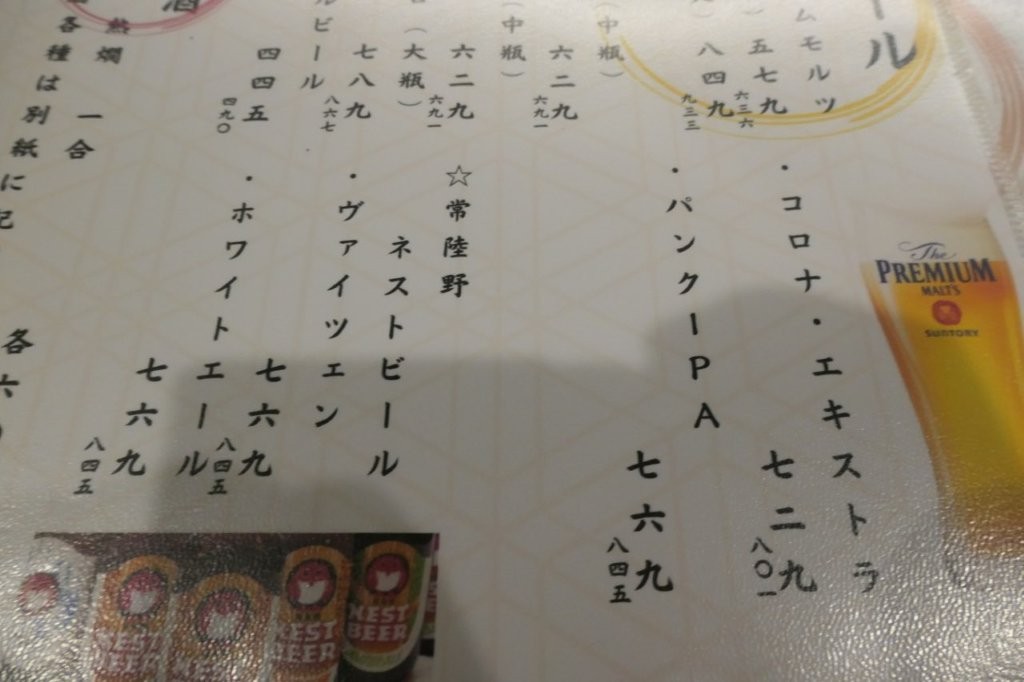 ール
ムモルツ
五七九
六三六
八四九
九三三
(中瓶)
六二九
六九一
(中瓶)
六二九
六九一
(大瓶)
七八九
八六七
ルビール
四四五
四九〇
酒
熱燗
一合
各種は別紙に記
・コロナ・エキストラ
七二九
八〇一
・パンクIPA
七六九
八四五
☆常陸野
ネストビール
・ヴァイツェン
七六九
八四五
・ホワイトエール
七六九
八四五
各六
The
PREMIUM
MALT'S
SUNTORY
NEST
BEER
NEST
BEER
NEST
BEER